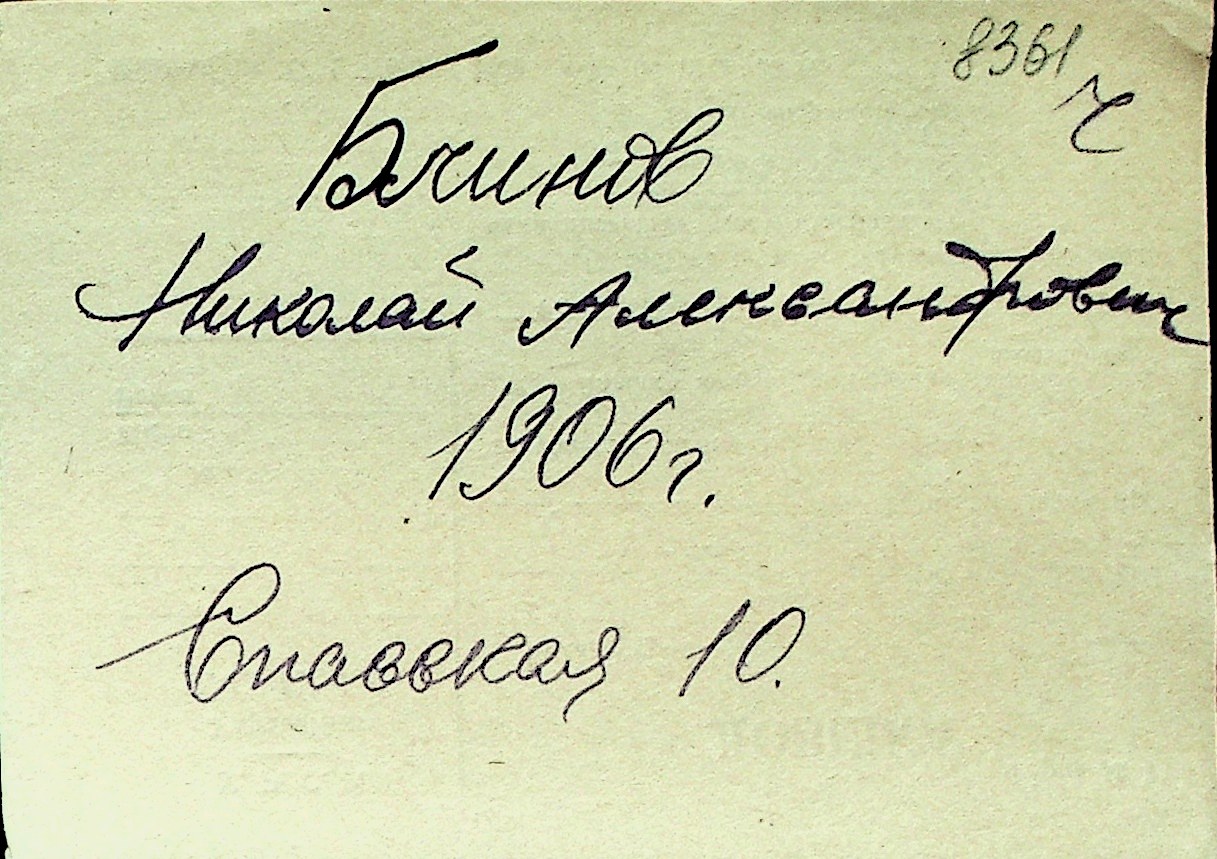 8361
ч
Блинов
Николай Александрович
1906 г.
Спасская 10.